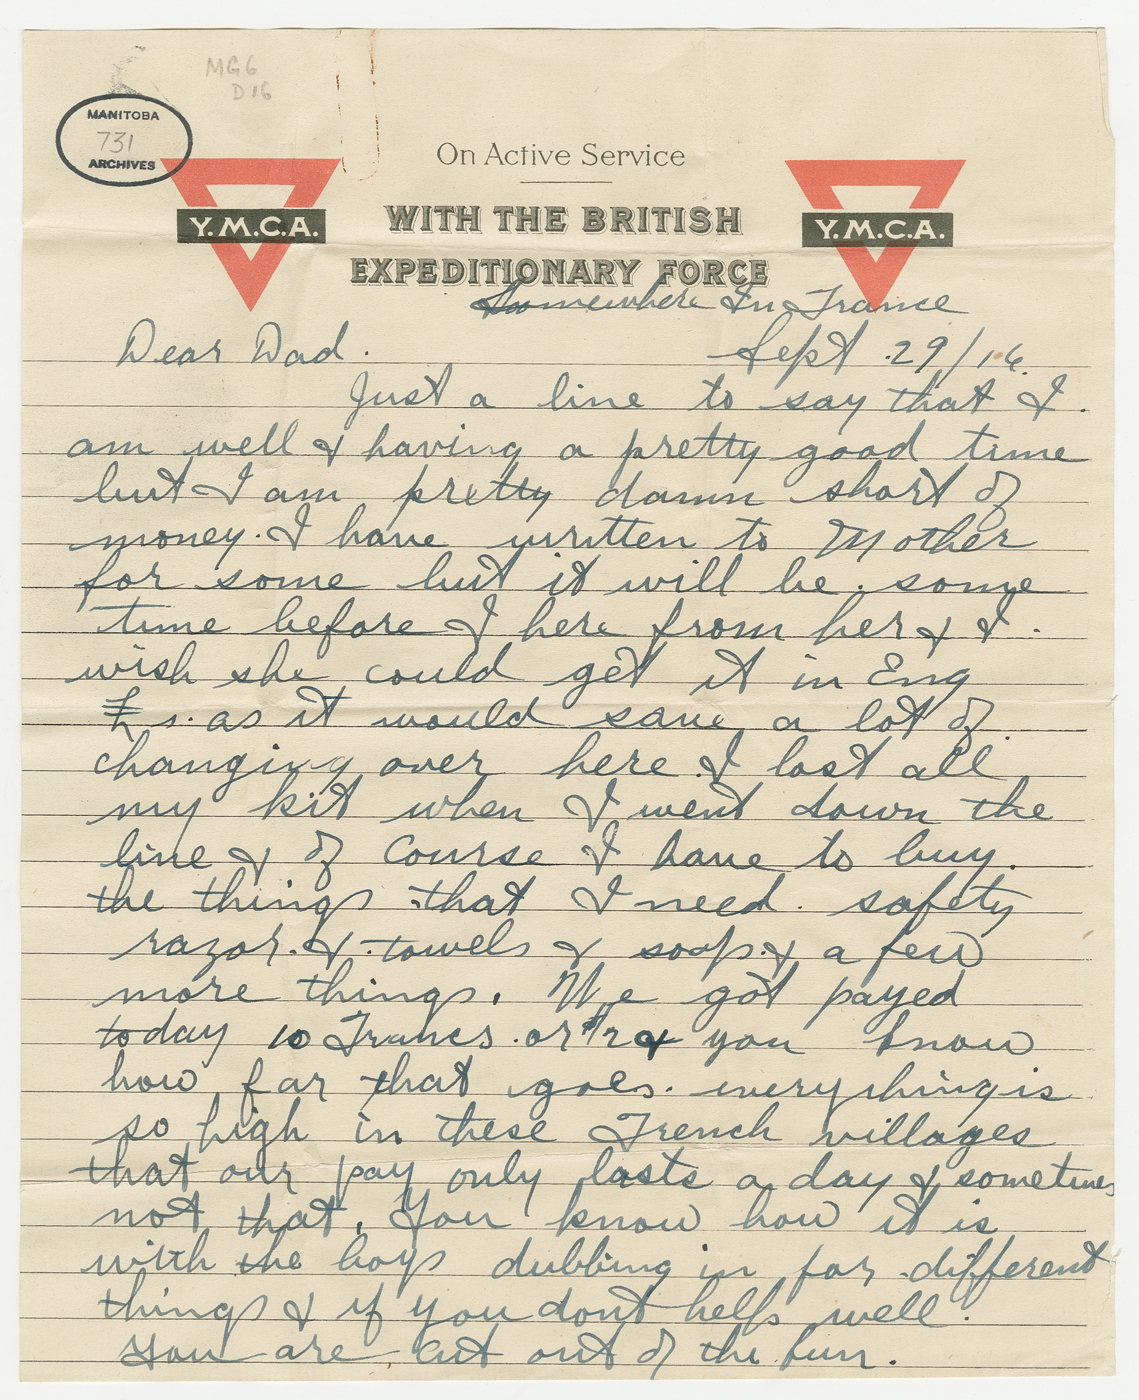 MG6
D16
MANITOBA
731
ARCHIVES
On Active Service
Y.M.C.A.
WITH THE BRITISH
Y.M.C.A.
EXPEDITIONARY FORCE
Somewhere In France
Dear Dad.
Sept 29/16.
Just a line to say that I.
am well & having a pretty good time
but I am pretty damn short of
money. I have written to Mother
for some but it will be some
time before I here from her & I.
wish she could get it in Eng
£ s. as it would save a lot of.
changing over here. I lost all
my kit when I went down the
line & of course I have to buy.
the things that I need. safety
razor. & towels & soap. & a few
more things. We got payed
today 10 Francs. or $2 & you know
how far that goes. everything is
so high in these French villages
that our pay only lasts a day & sometimes
not that. You know how it is
with the boys dubbing in for different
things & if you dont help well.
you are cut out of the fun.